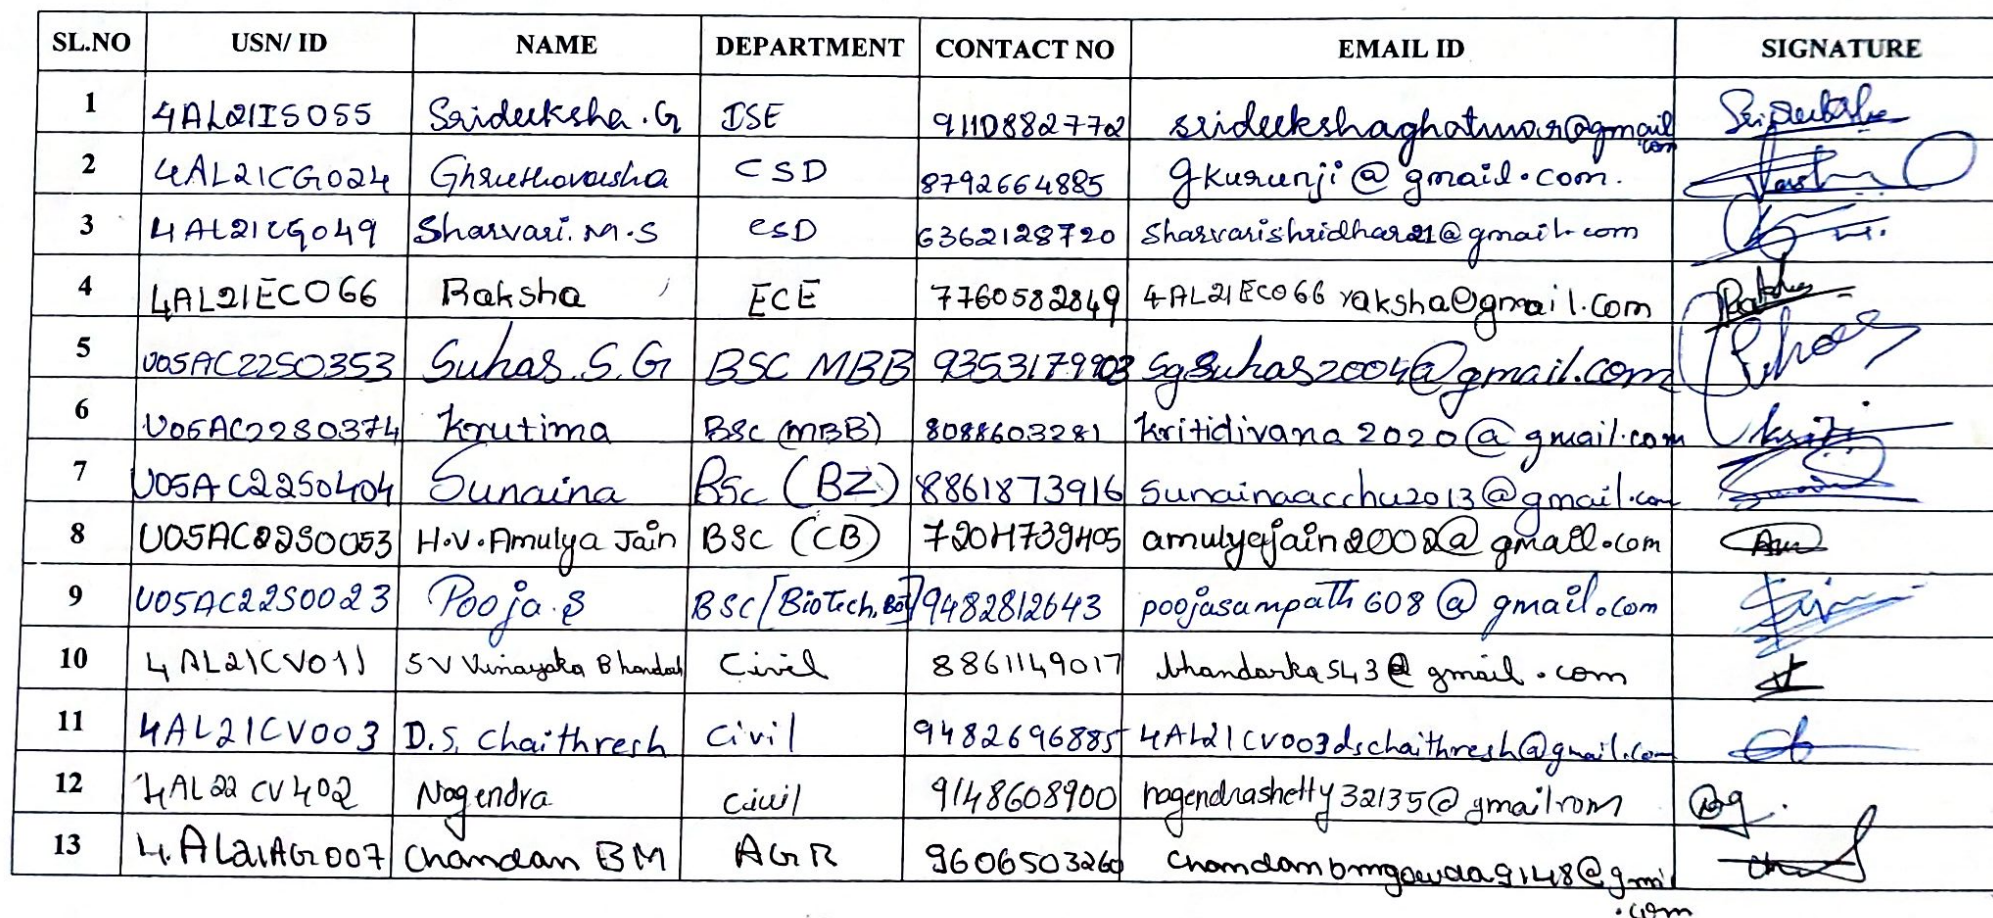 SL.NO USN/ ID NAME DEPARTMENT CONTACT NO EMAIL ID SIGNATURE
1 4AL21IS055 Srideeksha.G ISE 9110882772 srideekshaghatwar@gmail.com
2 4AL21CG024 Ghruthavarsha CSD 8792664885 gkurunji@gmail.com.
3 4AL21CG049 Sharvari.M.S CSD 6362128720 sharvarishridhar21@gmail.com
4 4AL21EC066 Raksha ECE 7760582849 4AL21EC066raksha@gmail.com
5 U05AC22S0353 Suhas.S.G BSC MBB 9353179903 sgsuhas2004@gmail.com
6 U05AC22S0374 Krutima BSc (MBB) 8088603281 kritidivana2020@gmail.com
7 U05AC22S0404 Sunaina BSc (BZ) 8861873916 sunainaacchu2013@gmail.com
8 U05AC22S0053 H.V.Amulya Jain BSC (CB) 7204739405 amulyajain2002@gmail.com
9 U05AC22S0023 Pooja.S BSC[BioTech,Bot] 9482812643 poojasampath608@gmail.com
10 4AL21CV011 SV Vinayaka Bhandari Civil 8861149017 bhandarka543@gmail.com
11 4AL21CV003 D.S. Chaithresh Civil 9482696885 4AL21CV003dschaithresh@gmail.com
12 4AL22CV402 Nagendra Civil 9148608900 nagendrashetty32135@gmail.com
13 4AL21AG007 Chandan BM AGR 9606503260 chandanbmgowda9148@gmi
.com